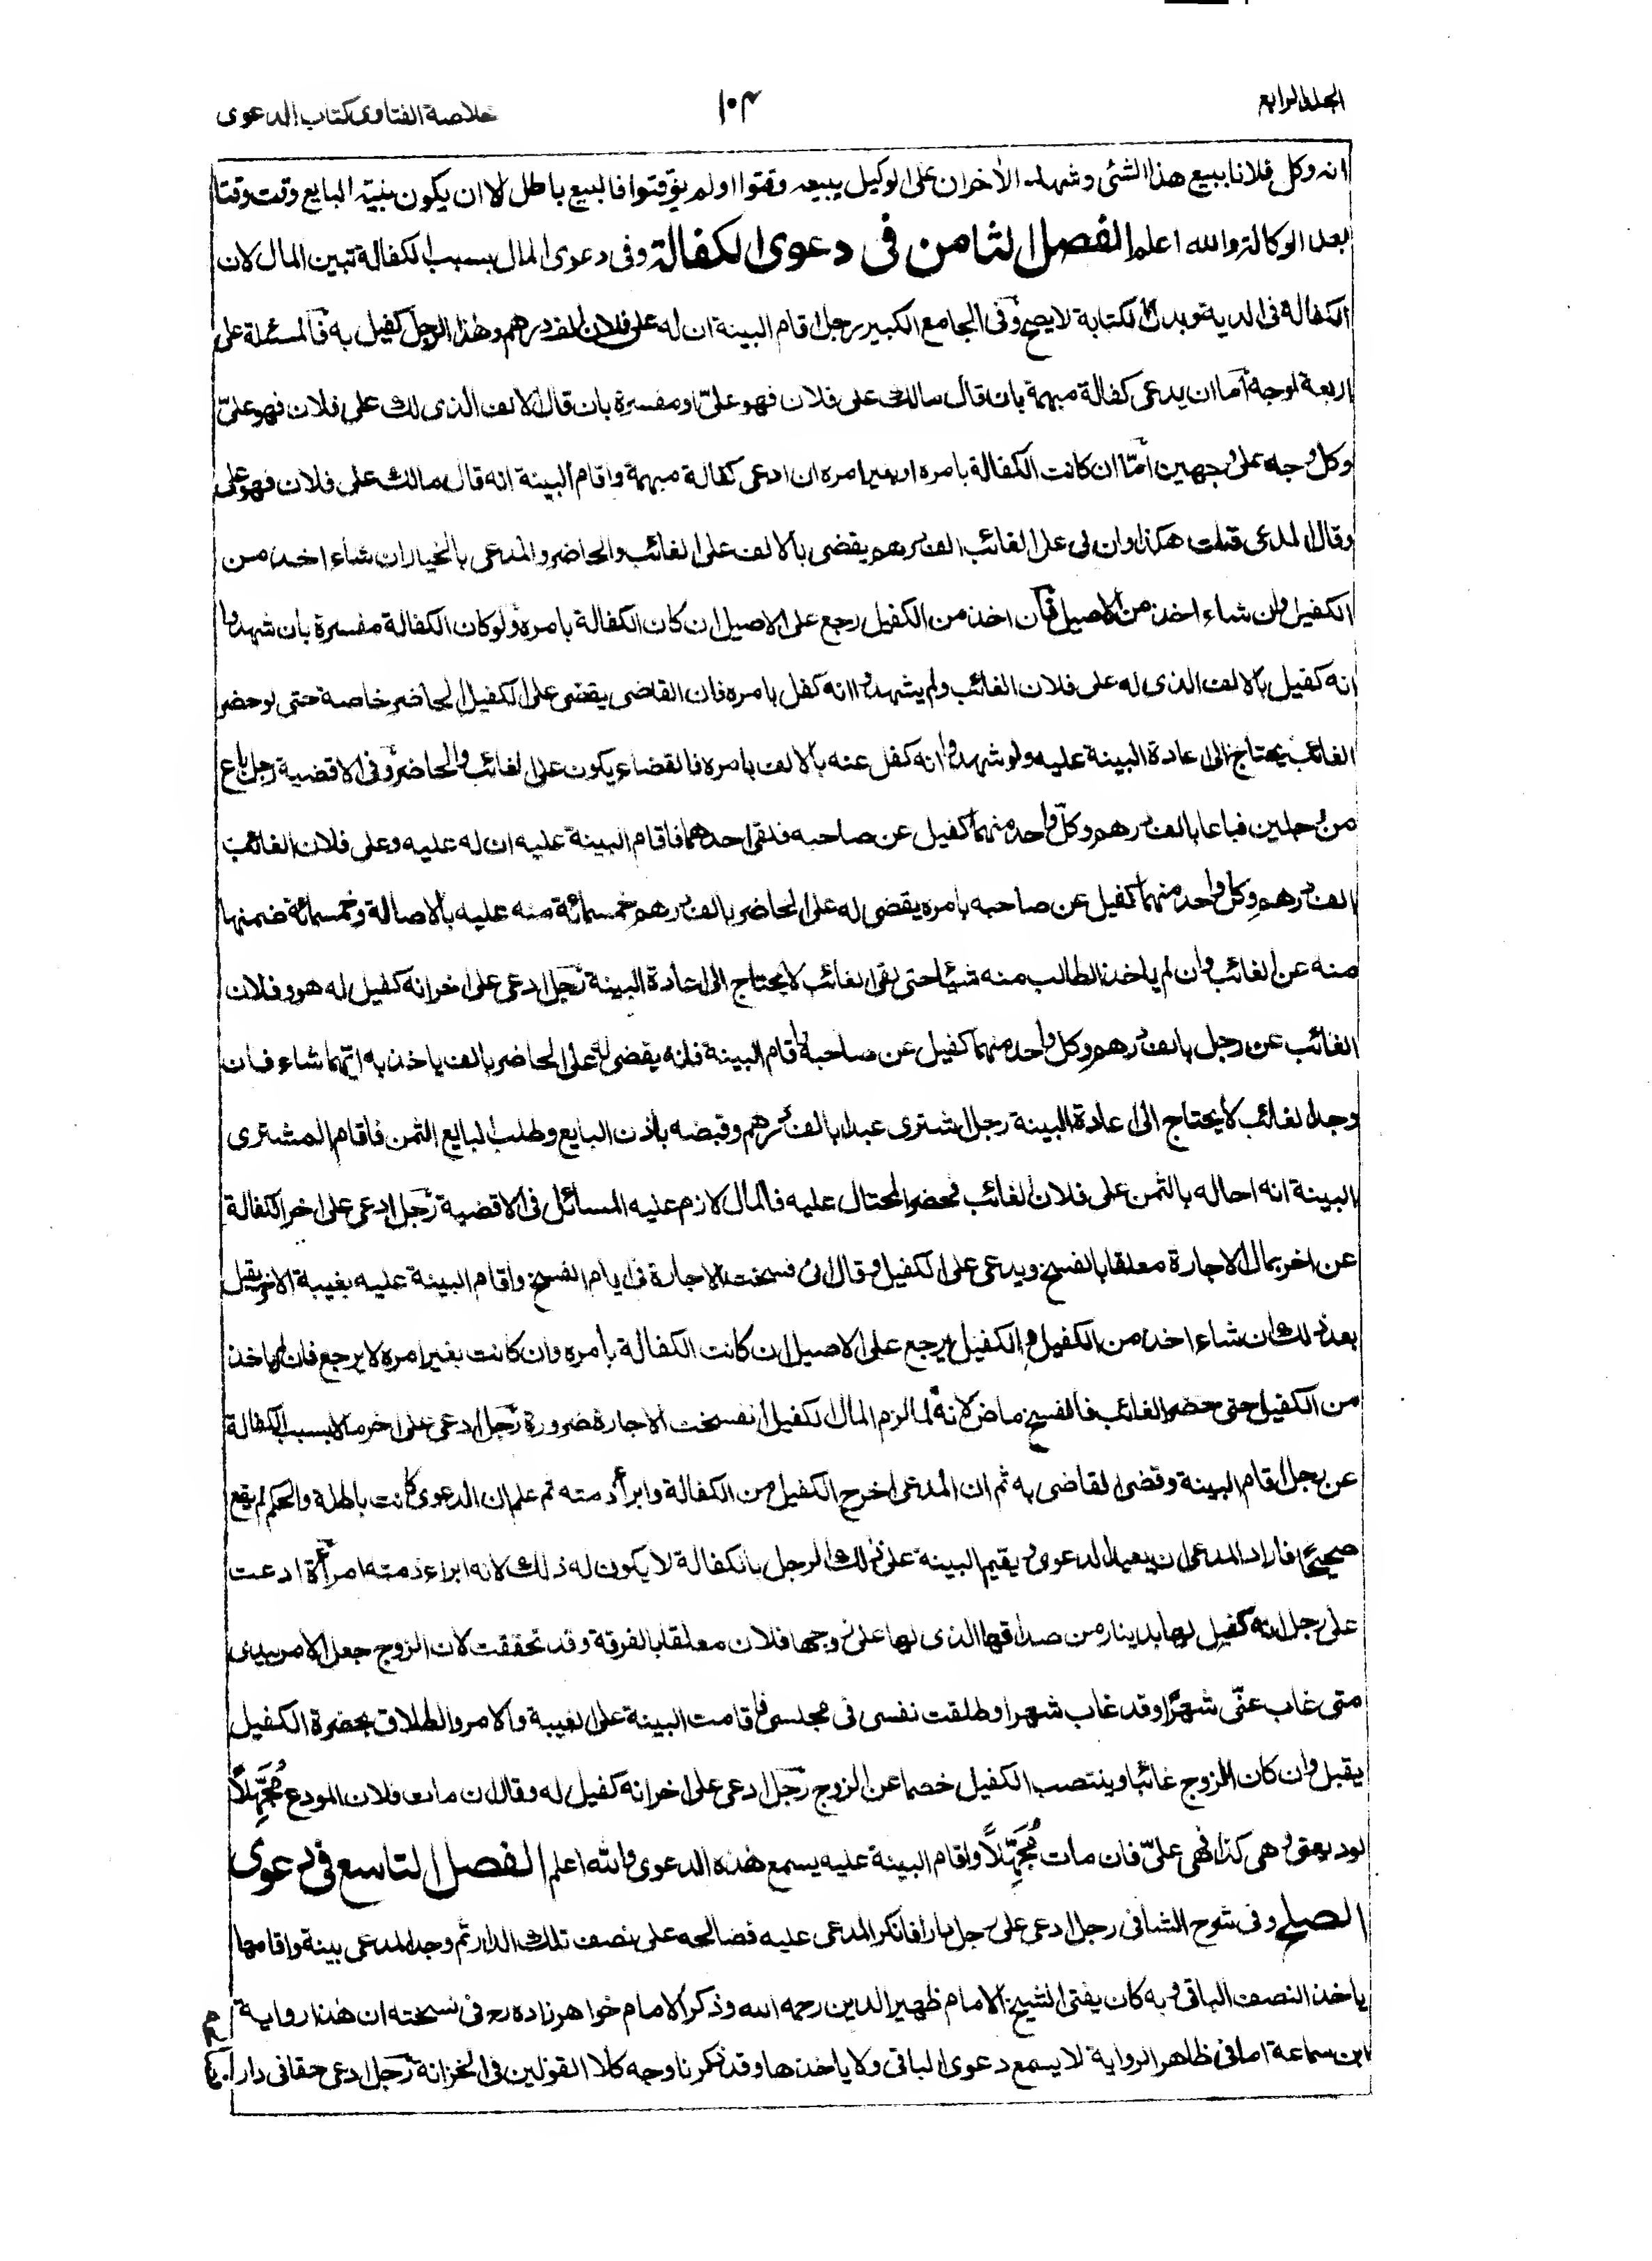 المجلد الرابع
١٠٤
خلاصة الفتاوى كتاب الدعوى
انه وكل فلانا ببيع هذا الشئى وشهد الأخران على الوكيل ببيعه وقتوا او لم يوقتوا فالبيع باطل لا ان يكون بنية البايع وقت وقتا
بعد الوكالة والله اعلم الفصل الثامن فى دعوى الكفالة وفى دعوى المال بسبب الكفالة تبين المال لان
الكفالة فى الدية وبدل الكتابة لا يصح وفى الجامع الكبير رجل اقام البينة ان له على فلان الف درهم وهذا الرجل كفيل به فالمسئلة على
اربعة اوجه اما ان يدعى كفالة مبهمة بان قال مالك على فلان فهو علىّ او مفسرة بان قال الالف الذى لك على فلان فهو علىّ
وكل وجه على وجهين امّا ان كانت الكفالة بامره او بغير امره ان ادعى كفالة مبهمة واقام البينة انه قال مالك على فلان فهو على
وقال المدعى قبلت هكذا وان لى على الغائب الف درهم يقضى بالالف على الغائب والحاضر والمدعى بالخيار ان شاء اخذ من
الكفيل وان شاء اخذ من الاصيل فان اخذ من الكفيل رجع على الاصيل ان كان الكفالة بامره ولو كان الكفالة مفسرة بان شهدوا
انه كفيل بالالف الذى له على فلان الغائب ولم يشهدوا انه كفل بامره فان القاضى يقضى على الكفيل الحاضر خاصة حتى لو حضر
الغائب يحتاج الى اعادة البينة عليه ولو شهدوا انه كفل عنه بالالف بامره فالقضاء يكون على الغائب والحاضر وفى الاقضية رجل باع
من رجلين فباعا بالف درهم وكلّ واحد منهما كفيل عن صاحبه فلقى احدهما فاقام البينة عليه ان له عليه وعلى فلان الغائب
الف درهم وكل واحد منهما كفيل عن صاحبه بامره يقضى له على الحاضر بالف درهم خمسمائة منه عليه بالاصالة وخمسمائة ضمنها
منه عن الغائب وان لم ياخذ الطالب منه شيئا حتى لقى الغائب لا يحتاج الى اعادة البينة رجل ادعى على اخر انه كفيل له هو وفلان
الغائب عن رجل بالف درهم وكل واحد منهما كفيل عن صاحبه واقام البينة فانه يقضى له على الحاضر بالف ياخذ به ايّهما شاء فان
وجد الغائب لا يحتاج الى اعادة البينة رجل اشترى عبدا بالف درهم وقبضه باذن البايع وطلب البايع الثمن فاقام المشترى
البينة انه احاله بالثمن على فلان الغائب فحضر المحتال عليه فالمال لازم عليه المسائل فى الاقضية رجل ادعى على اخر الكفالة
عن اخر بمال الاجارة معلقا بالفسخ ويدعى على الكفيل وقال انى فسخت الاجارة فى ايام الفسخ واقام البينة عليه بغيبة الاخر يقبل
بعد ذلك ان شاء اخذ من الكفيل والكفيل يرجع على الاصيل ان كانت الكفالة بأمره وان كانت بغير امره لا يرجع فان لم ياخذ
من الكفيل حتى حضر الغائب فالفسخ ماض لانه لما لزم المال الكفيل انفسخت الاجارة ضرورة رجل ادعى على اخر مالا بسبب الكفالة
عن رجل اقام البينة وقضى القاضى به ثم ان المدعى اخرج الكفيل من الكفالة وابرأ ذمته ثم علم ان الدعوى كانت باطلة والحكم لم يقع
صحيحًا فاراد المدعى ان يعيد الدعوى ويقيم البينة على ذلك الرجل بالكفالة لا يكون له ذلك لانه ابراء ذمته امرأة ادعت
على رجل انه كفيل لها بدينار من صداقها الذى لها على زوجها فلان معلقا بالفرقة وقد تحققت لان الزوج جعل الامر بيدى
متى غاب عنّى شهرًا وقد غاب شهرا وطلقت نفسى فى مجلسى فاقامت البينة على الغيبة والامر والطلاق بحضرة الكفيل
يقبل وان كان الزوج غائبا وينتصب الكفيل خصما عن الزوج رجل ادعى على اخر انه كفيل له وقال ان مات فلان المودع مُجَهِّلًا
لوديعتى وهى كذا فهى علىّ فان مات مُجَهِّلًا واقام البينة عليه يسمع هذه الدعوى والله اعلم الفصل التاسع فى دعوى
الصلح وفى شرح الشافى رجل ادعى على رجل دارا فانكر المدعى عليه فصالحه على نصف تلك الدار ثم وجد المدعى بينة واقامها
ياخذ النصف الباقى وبه كان يفتى الشيخ الامام ظهير الدين رحمه الله وذكر الامام خواهرزاده رح فى نسخته ان هذا رواية
ابن سماعة اما فى ظاهر الرواية لا يسمع دعوى الباقى ولا ياخذها وقد ذكرنا وجه كلا القولين فى الخزانة رجل ادعى حقا فى دار